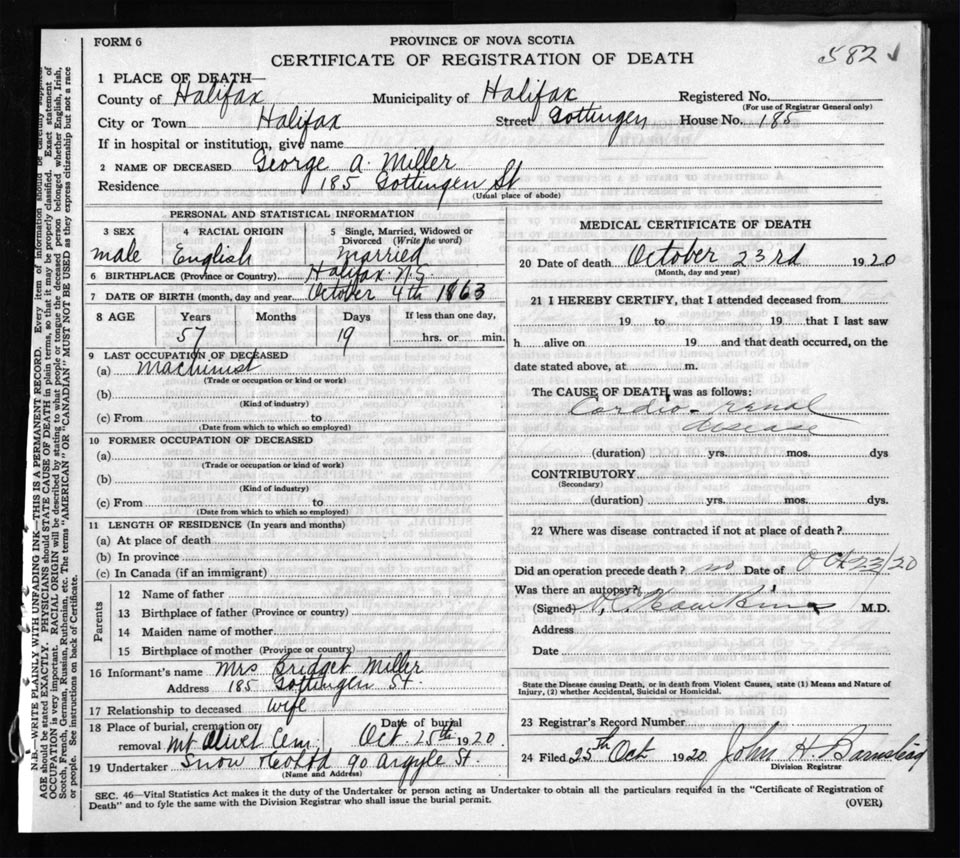 FORM 6
PROVINCE OF NOVA SCOTIA
582
CERTIFICATE OF REGISTRATION OF DEATH
1 PLACE OF DEATH—
County of Halifax Municipality of Halifax Registered No.
(For use of Registrar General only)
City or Town Halifax Street Gottingen House No. 185
If in hospital or institution, give name
2 NAME OF DECEASED George A. Miller
Residence 185 Gottingen St
(Usual place of abode)
PERSONAL AND STATISTICAL INFORMATION
3 SEX 4 RACIAL ORIGIN 5 Single, Married, Widowed or Divorced (Write the word)
male English Married
6 BIRTHPLACE (Province or Country) Halifax N.S.
7 DATE OF BIRTH (month, day and year) October 4th 1863
8 AGE Years Months Days If less than one day,
57 19 hrs. or min.
9 LAST OCCUPATION OF DECEASED
(a) Machinist
(Trade or occupation or kind or work)
(b)
(Kind of industry)
(c) From to
(Date from which to which so employed)
10 FORMER OCCUPATION OF DECEASED
(a)
(Trade or occupation or kind of work)
(b)
(Kind of industry)
(c) From to
(Date from which to which so employed)
11 LENGTH OF RESIDENCE (In years and months)
(a) At place of death
(b) In province
(c) In Canada (if an immigrant)
Parents
12 Name of father
13 Birthplace of father (Province or country)
14 Maiden name of mother
15 Birthplace of mother (Province or country)
16 Informant's name Mrs Bridget Miller
Address 185 Gottingen St.
17 Relationship to deceased wife
18 Place of burial, cremation or Date of burial
removal Mt Olivet Cem, Oct 25th 1920.
19 Undertaker Snow 90 Argyle St.
(Name and Address)
MEDICAL CERTIFICATE OF DEATH
20 Date of death October 23rd 1920
(Month, day and year)
21 I HEREBY CERTIFY, that I attended deceased from
19 to 19 that I last saw
h alive on 19 and that death occurred, on the
date stated above, at m.
The CAUSE OF DEATH was as follows:
Cardio-renal
disease
(duration) yrs. mos. dys
CONTRIBUTORY
(Secondary)
(duration) yrs. mos. dys.
22 Where was disease contracted if not at place of death?
Did an operation precede death? no Date of Oct 23/20
Was there an autopsy?
(Signed) Hawkins M.D.
Address
Date
State the Disease causing Death, or in death from Violent Causes, state (1) Means and Nature of
Injury, (2) whether Accidental, Suicidal or Homicidal.
23 Registrar's Record Number
24 Filed 25th Oct 1920 John H. Barnstead
Division Registrar
SEC. 46—Vital Statistics Act makes it the duty of the Undertaker or person acting as Undertaker to obtain all the particulars required in the "Certificate of Registration of
Death" and to fyle the same with the Division Registrar who shall issue the burial permit.
(OVER)
N.B.—WRITE PLAINLY WITH UNFADING INK—THIS IS A PERMANENT RECORD. Every item of information should be carefully supplied.
AGE should be stated EXACTLY. PHYSICIANS should STATE CAUSE OF DEATH in plain terms, so that it may be properly classified. Exact statement of
OCCUPATION is very important. RACIAL ORIGIN will be described by stating to what people or tongue the deceased person belonged, whether English, Irish,
Scotch, French, German, Russian, Ruthenian, etc. The terms "AMERICAN" OR "CANADIAN" MUST NOT BE USED as they express citizenship but not a race
or people. See instructions on back of Certificate.